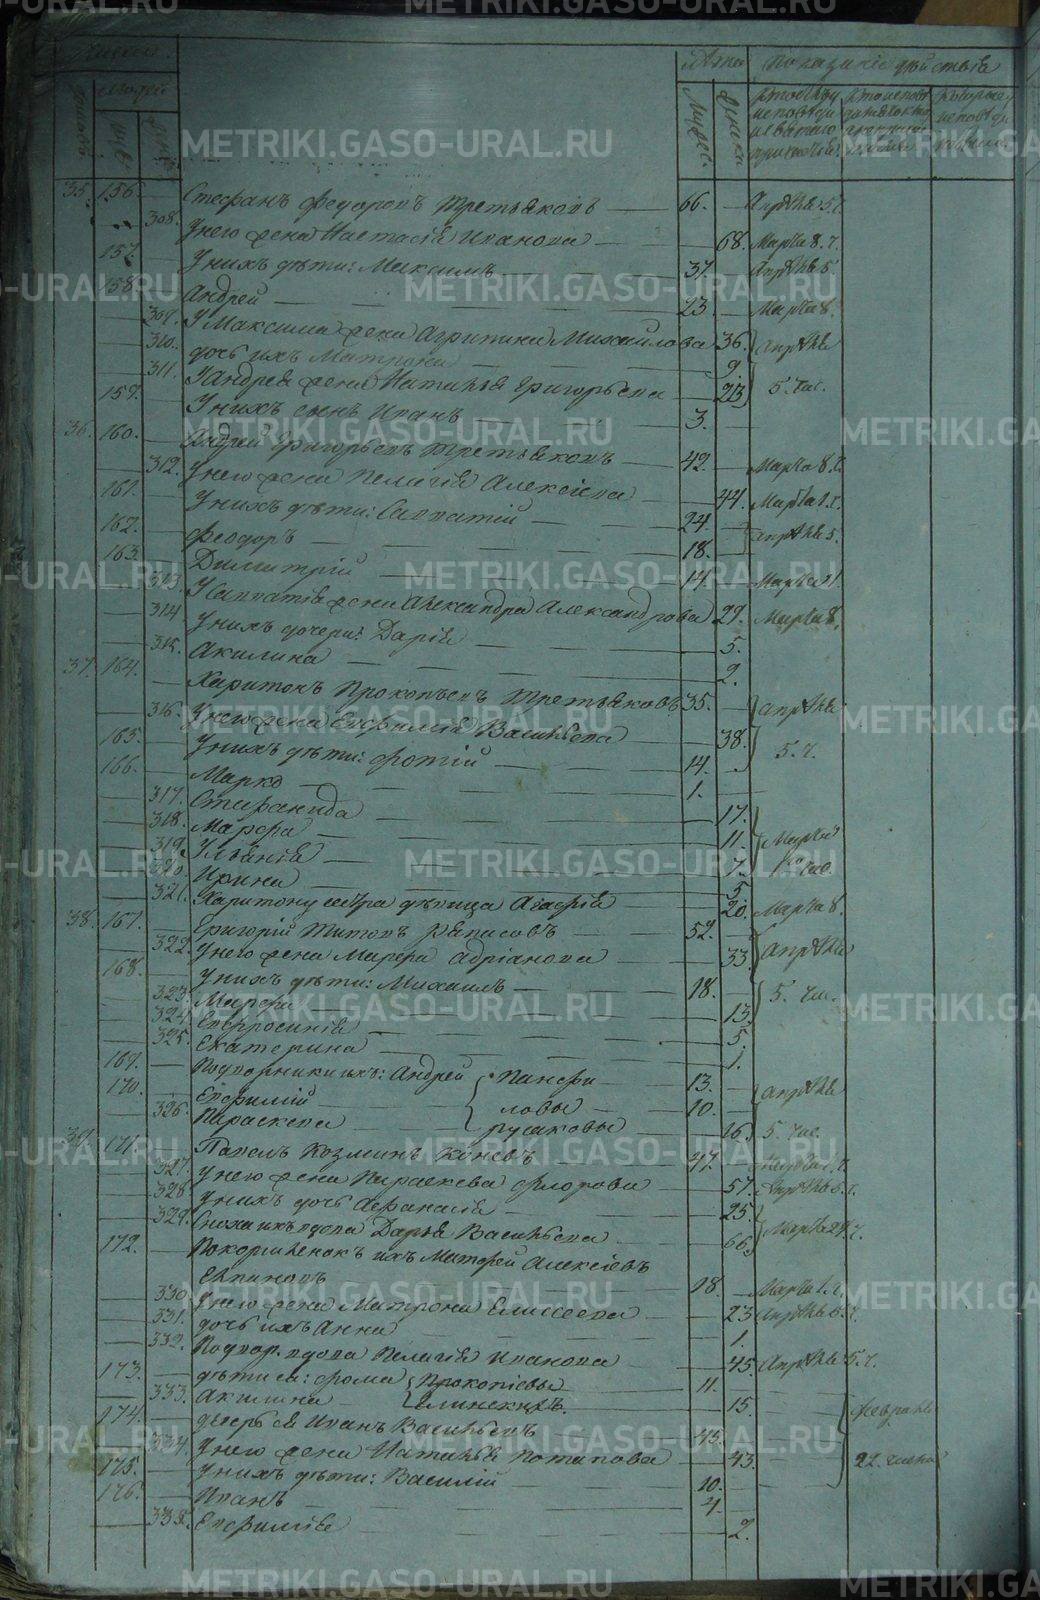 Число
Людей
Лѣта
Показаніе дѣйствія
Мужес.
Женска
35. 156. Стефанъ Федоровъ Третьяковъ 66. Апрѣля 5. ч.
308. У него жена Настасія Иванова 68. Марта 8. ч.
157. У нихъ дѣти: Максимъ 37. Апрѣля 5.
158. Андрей 23. Марта 8.
309. У Максима жена Агрипина Михайлова 36. Апрѣля
310. дочь ихъ Матрона 9. 5. чис.
311. У Андрея жена Наталья Григорьева 23
159. У нихъ сынъ Иванъ 3.
36. 160. Андрей Григорьевъ Третьяковъ 42. Марта 8. ч.
312. У него жена Пелагія Алексіева 44. Марта 1. ч.
161. У нихъ дѣти: Савватій 24. Апрѣля 5.
162. Феодоръ 18.
163. Димитрій 14. Марта 1.
313. У Савватія жена Александра Александрова 29. Марта 8.
314 У нихъ дочери: Дарія 5.
315. Акилина 2.
37. 164. Харитонъ Прокопьевъ Третьяковъ 35. Апрѣля
316. У него жена Евфимія Васильева 38. 5. ч.
165. У нихъ дѣти: Фотій 14.
166. Марко 1.
317. Степанида 17.
318. Марфа 11. Марта
319. Ульянія 7. 1го чис.
320. Ирина 5
321. Харитону сестра дѣвица Агафія 20. Марта 8.
38. 167. Григорій Титовъ 52. Апрѣля
322. У него жена Марфа Адріанова 33. 5. чис.
168. У нихъ дѣти: Михаилъ 18.
323. Марфа 13.
324. Евфросинія 5.
325. Екатерина 1.
169. Подворники ихъ: Андрей Панфи 13. Апрѣля
170. Евфимій ловы 10.
326. Параскева Русаковы 16. 5. чис.
39. 171. Павелъ Козминъ Коневъ 47. Марта 1. ч.
327. У него жена Параскева Флорова 57. Апрѣля 5. ч.
328 У нихъ дочь Афанасія 25.
329. Сноха ихъ вдова Дарья Васильева 66. Марта
172. Вскормленокъ ихъ Матфей Алексіевъ
18. Марта 1. ч.
330. У него жена Матрона Елисеева 23 Апрѣля 5. ч.
331. дочь ихъ Анна 1.
332. Подвор. вдова Пелагія Иванова 45. Апрѣля 5. ч.
173. дѣти ея: Фома Прокопіевы 11.
333. Акилина 15. Февраля
174. Иванъ Васильевъ 45.
334. У него жена Наталья Потапова 43. 22. числа
175. У нихъ дѣти: Василій 10.
176. Иванъ 4.
335. Евфимія 2.
METRIKI.GASO-URAL.RU